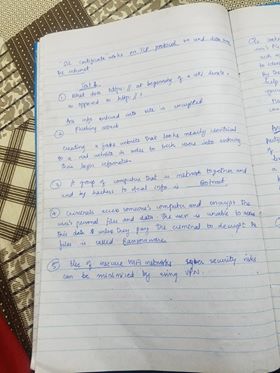 SSL certificate works on TCP protocol to send data over
the internet
Task 6
① What does https:// at beginning of a URL denote
as opposed to http://?
Ans info entered into site is encrypted
② Phishing attack
Creating a fake website that looks nearly identical
to a real website in order to trick users into entering
their login information
③ A group of computers that is network together and
used by hackers to steal info is Botnet
④ Criminals access someone's computer and encrypt the
user's personal files and data. The user is unable to access
this data unless they pay the criminal to decrypt the
files is called Ransomware
⑤ Use of insecure wifi networks security risks
can be minimised by using VPN.